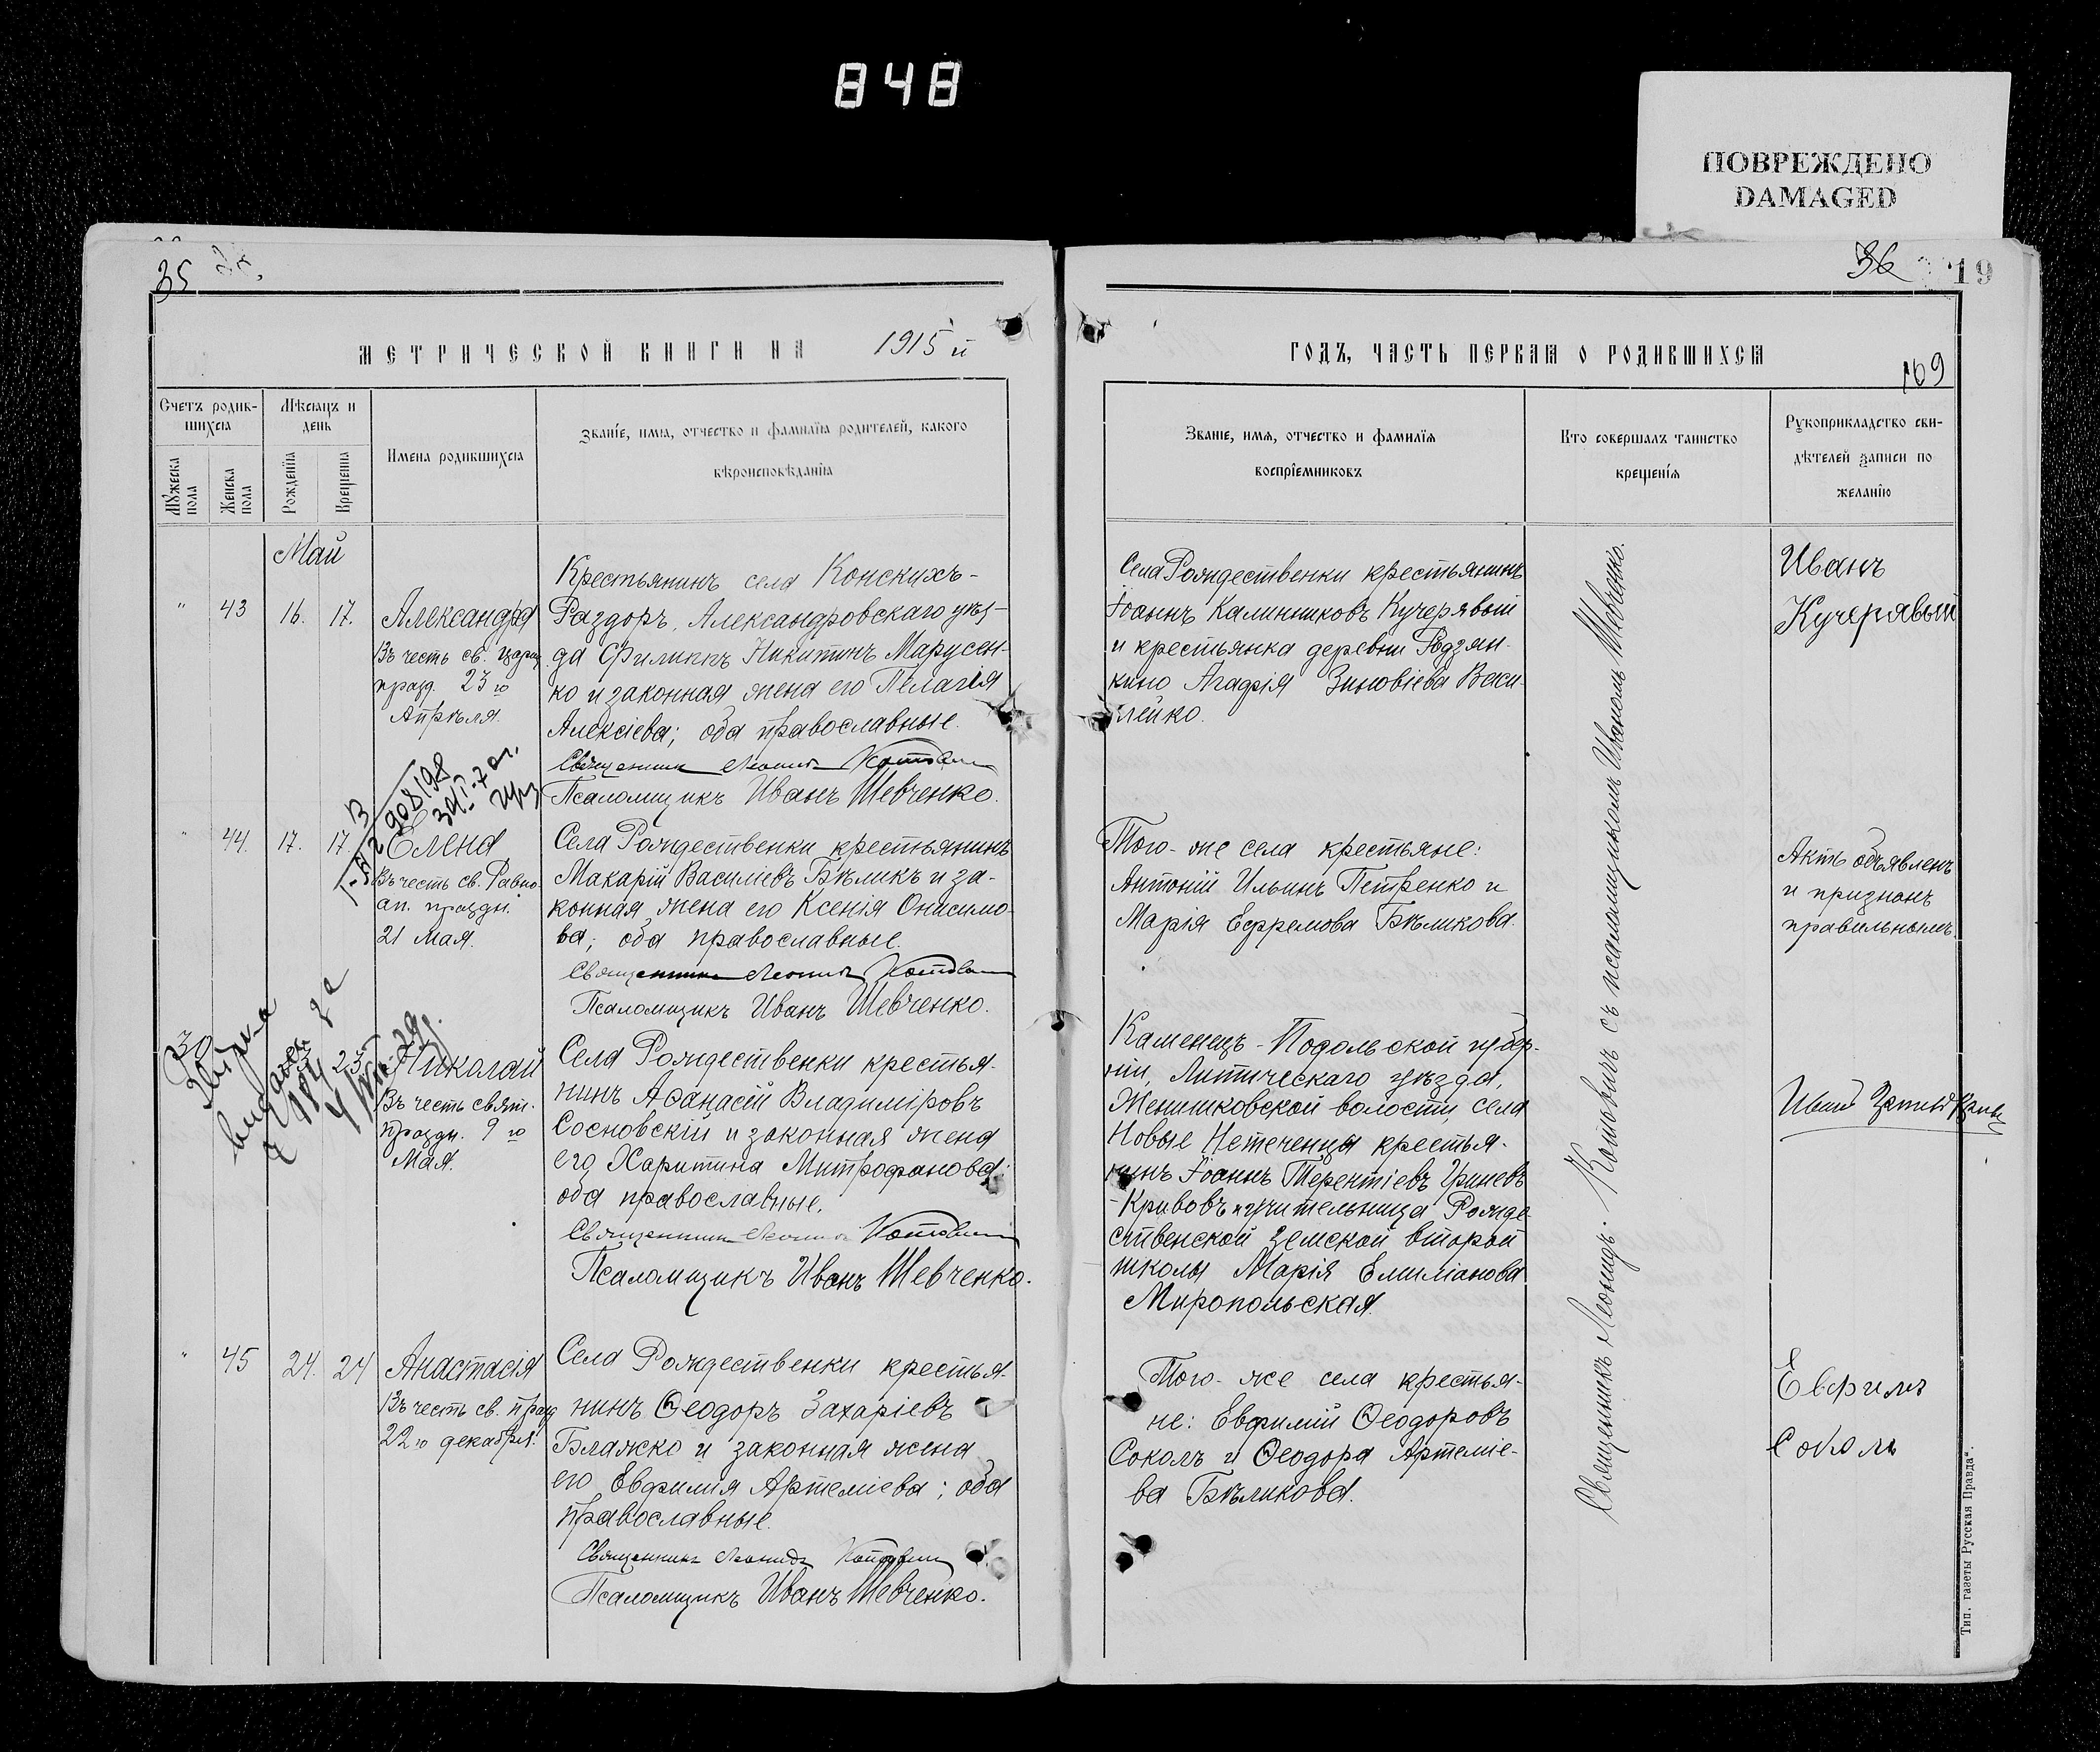 848
ПОВРЕЖДЕНО
DAMAGED
35
36
19
МЕТРИЧЕСКОЙ КНИГИ НА 1915 й
ГОДЪ, ЧАСТЬ ПЕРВАЯ О РОДИВШИХСЯ
169
Счетъ родив-
шихся
Мужеска пола
Женска пола
Мѣсяцъ и
день
Рожденія
Крещенія
Имена родившихся
Званіе, имя, отчество и фамилія родителей, какого
вѣроисповѣданія
Званіе, имя, отчество и фамилія
воспріемниковъ
Кто совершалъ таинство
крещенія
Рукоприкладство сви-
дѣтелей записи по
желанію
Май
" 43 16. 17.
Александра
Въ честь св. цариц.
празд. 23 го
Апрѣля.
Крестьянинъ села Конскихъ-
Раздоръ, Александровскаго уѣз-
да Филиппъ Никитинъ Марусен-
ко и законная жена его Пелагія
Алексіева; оба православные.
Священникъ Леонидъ Котовичъ
Псаломщикъ Иванъ Шевченко.
Села Рождественки крестьянинъ
Іоаннъ Калинниковъ Кучерявый
и крестьянка деревни Родзян-
кино Агафія Зиновіева Васи-
лейко.
Иванъ
Кучерявый
" 44. 17. 17.
Елена
Въ честь св. Равно-
ап. праздн.
21 Мая.
Села Рождественки крестьянинъ
Макарій Василіевъ Бѣликъ и за-
конная жена его Ксенія Онисимо-
ва; оба православные.
Священникъ Леонидъ Котовичъ
Псаломщикъ Иванъ Шевченко.
Того-же села крестьяне:
Антоній Ильинъ Петренко и
Марія Ефремова Бѣликова.
Актъ объявленъ
и признанъ
правильнымъ
30 23
Николай
Въ честь свят.
праздн. 9 го
Мая.
Села Рождественки крестья-
нинъ Аѳанасій Владиміровъ
Сосновскій и законная жена
его Харитина Митрофанова;
оба православные.
Священникъ Леонидъ Котовичъ
Псаломщикъ Иванъ Шевченко.
Каменецъ-Подольской губер-
ніи, Литическаго уѣзда,
Женишковской волости, села
Новые Нетеченцы крестья-
нинъ Іоаннъ Терентіевъ Гриневъ
-Кривовъ и учительница Рожде-
ственской земской второй
школы Марія Емиліанова
Миропольская.
" 45 24. 24
Анастасія
Въ честь св. празд
22 го декабря.
Села Рождественки крестья-
нинъ Ѳеодоръ Захаріевъ
Блажко и законная жена
его Евфимія Артеміева; оба
православные.
Священникъ Леонидъ Котовичъ
Псаломщикъ Иванъ Шевченко.
Того-же села крестья-
не: Евфимій Ѳеодоровъ
Соколъ и Ѳеодора Артеміе-
ва Бѣликова.
Евфимъ
Соколъ
Священникъ Леонидъ Котовичъ съ псаломщикомъ Иваномъ Шевченко.
Тип. газеты Русская Правда".